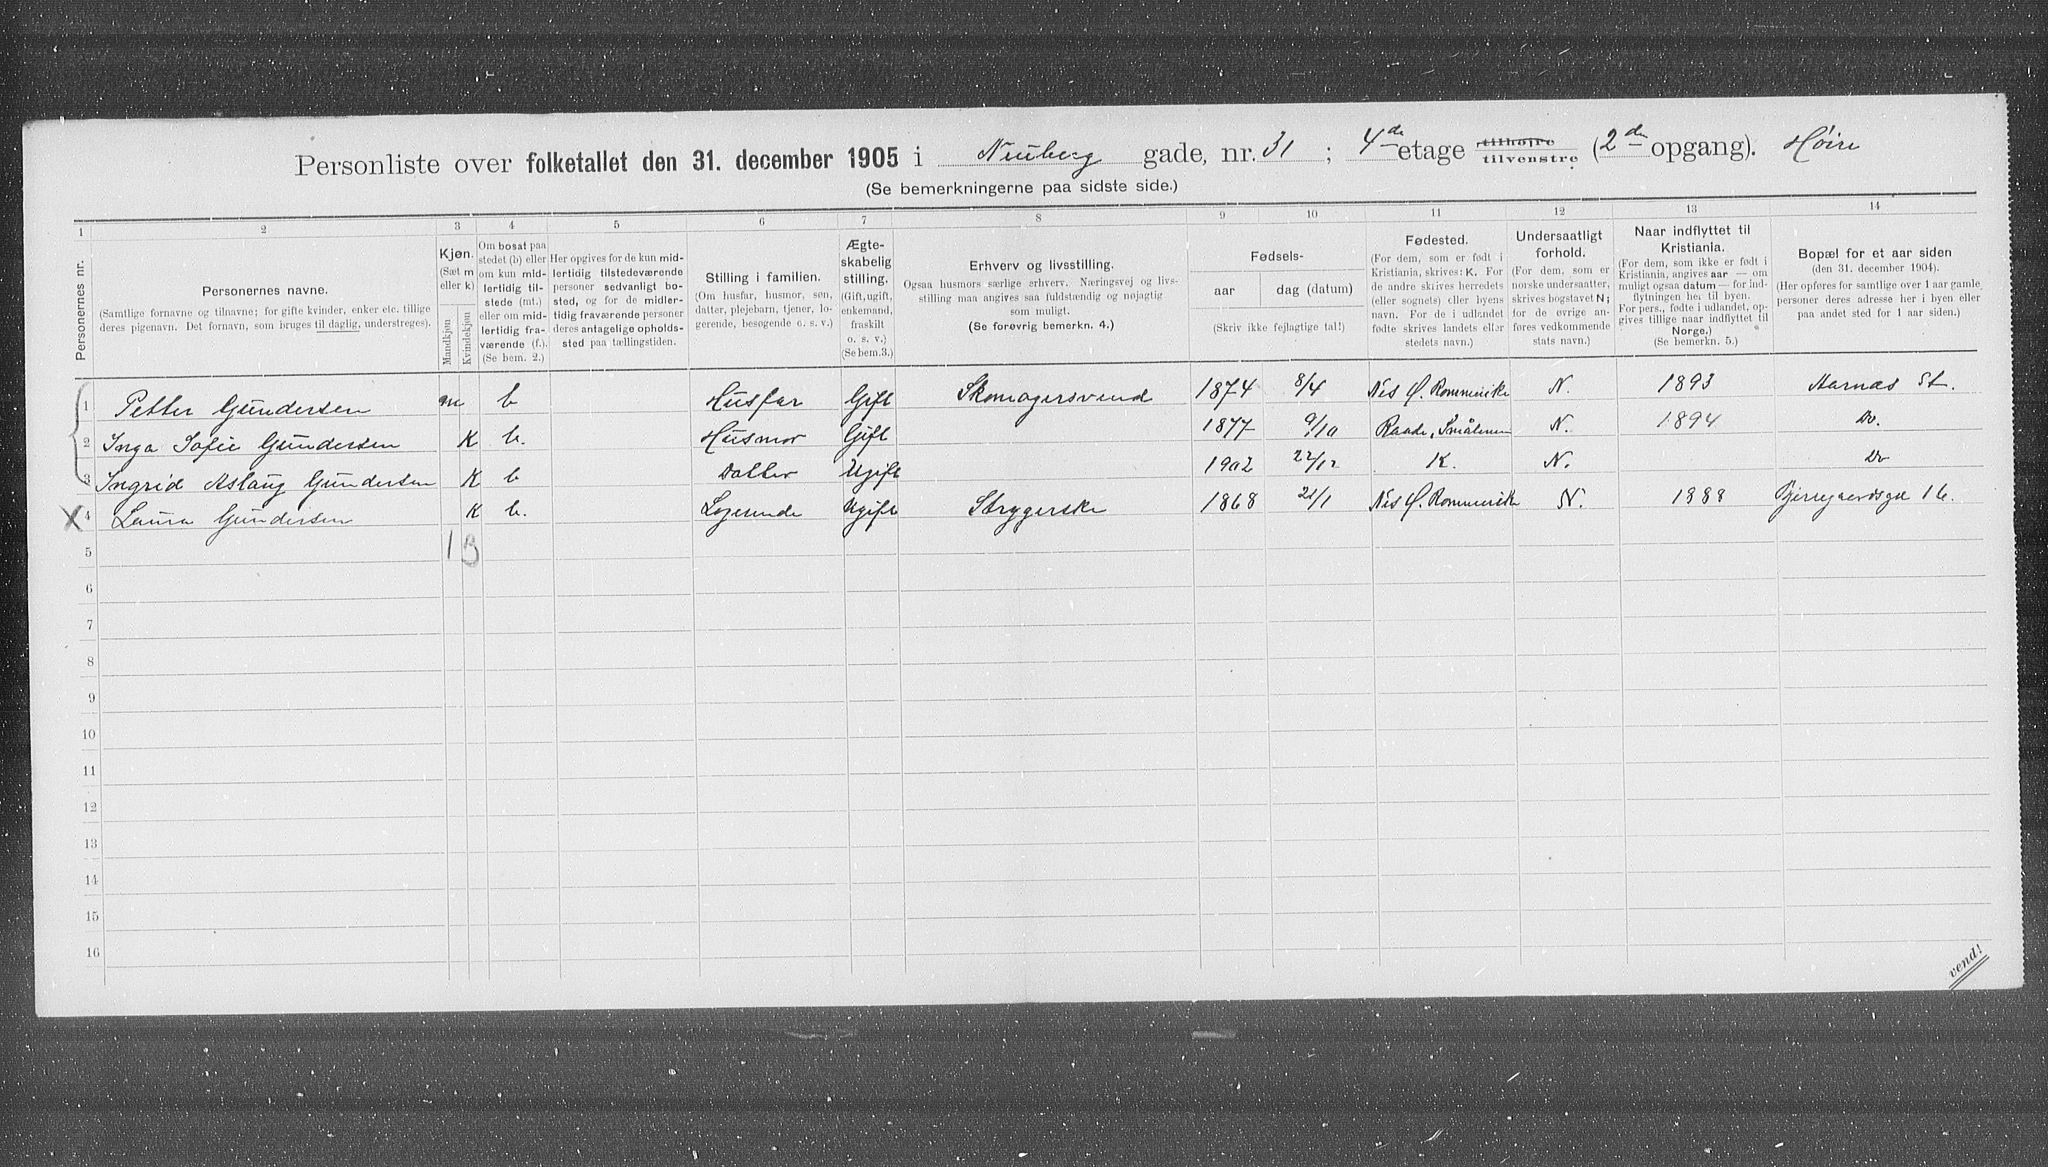 Personliste over folketallet den 31. december 1905 i Neuberg gade, nr. 31 ; 4de etage tilhøjre tilvenstre (2den opgang). Høire
(Se bemerkningerne paa sidste side.)
1 2 3 4 5 6 7 8 9 10 11 12 13 14
Personernes nr.
Personernes navne.
(Samtlige fornavne og tilnavne; for gifte kvinder, enker etc. tillige
deres pigenavn. Det fornavn, som bruges til daglig, understreges).
Kjøn.
(Sæt m
eller k)
Mandkjøn
Kvindekjøn
Om bosat paa
stedet (b) eller
om kun mid-
lertidig til-
stede (mt.)
eller om mid-
lertidig fra-
værende (f.).
(Se bem. 2.)
Her opgives for de kun mid-
lertidig tilstedeværende
personer sedvanligt bo-
sted, og for de midler-
tidig fraværende personer
deres antagelige opholds-
sted paa tællingstiden.
Stilling i familien.
(Om husfar, husmor, søn,
datter, plejebarn, tjener, lo-
gerende, besøgende o. s. v.)
Ægte-
skabelig
stilling.
(Gift, ugift,
enkemand,
fraskilt
o. s. v.)
(Se bem.3.)
Erhverv og livsstilling.
Ogsaa husmors særlige erhverv. Næringsvej og livs-
stilling maa angives saa fuldstændig og nøjagtig
som muligt.
(Se forøvrig bemerkn. 4.)
Fødsels-
aar
dag (datum)
(Skriv ikke fejlagtige tal!)
Fødested.
(For dem, som er født i
Kristiania, skrives: K. For
de andre skrives herredets
(eller sognets) eller byens
navn. For de i udlandet
fødte skrives landets eller
stedets navn.)
Undersaatligt
forhold.
(For dem, som er
norske undersaatter,
skrives bogstavet N;
for de øvrige an-
føres vedkommende
stats navn.)
Naar indflyttet til
Kristiania.
(For dem, som ikke er født i
Kristiania, angives aar — om
muligt ogsaa datum — for ind-
flytningen her til byen.
For pers., fødte i udlandet, op-
gives tillige naar indflyttet til
Norge.)
(Se bemerkn. 5.)
Bopæl for et aar siden
(den 31. december 1904).
(Her opføres for samtlige over 1 aar gamle
personer deres adresse her i byen eller
paa andet sted for 1 aar siden.)
1 Petter Gundersen m b Husfar Gift Skomagersvend 1874 8/4 Nes Ø. Rommerike N. 1893 Aarnæs St.
2 Inga Sofie Gundersen K b. Husmor Gift 1877 9/10 Raade, Smålenene N. 1894 Do.
3 Ingrid Aslaug Gundersen K b Datter Ugift 1902 22/12 K. N. Do
X 4 Laura Gundersen K b. Logerende Ugift Strygerske 1868 21/1 Nes Ø. Rommerike N. 1888 Bjerregaardsgd 16.
5 1 3
6
7
8
9
10
11
12
13
14
15
16
vend!